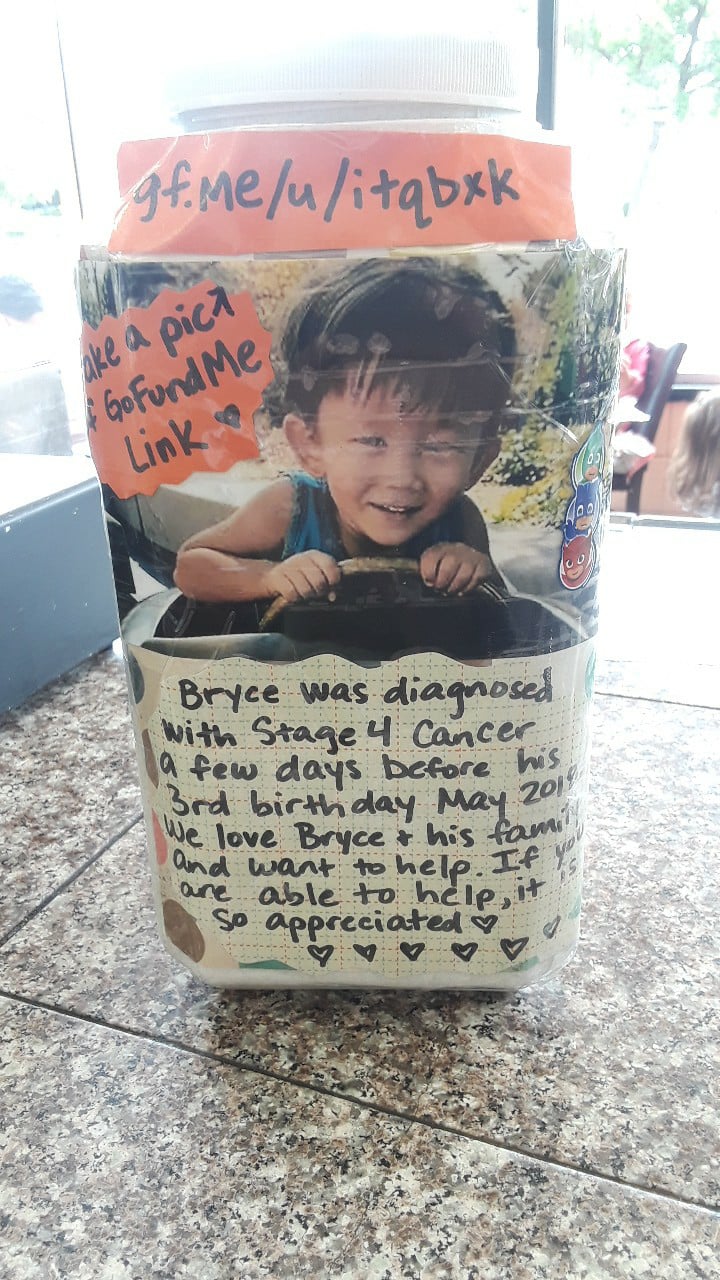 gf.Me/u/itqbxk
ake a pic↗
GoFundMe
Link ♥
Bryce was diagnosed
with Stage 4 Cancer
a few days before his
3rd birthday May 201
We love Bryce + his family
and want to help. If you
are able to help, it is
so appreciated ♡
♡ ♡ ♡ ♡ ♡ ♡